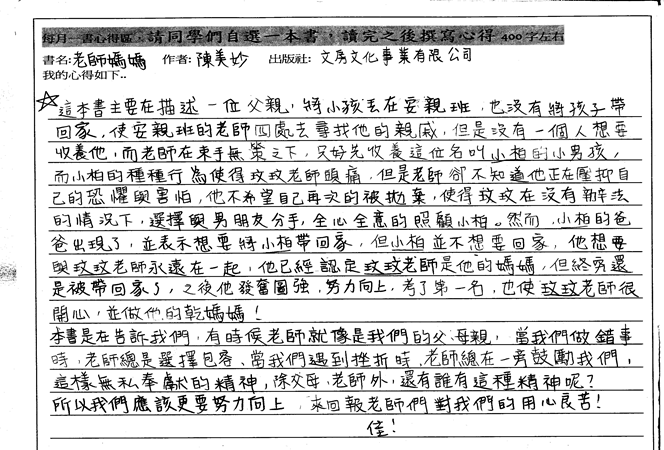 每月一書心得區：請同學們自選一本書，讀完之後撰寫心得 400字左右
書名:老師媽媽　作者:陳美妙　出版社:文房文化事業有限公司
我的心得如下..
☆這本書主要在描述一位父親，將小孩丟在安親班，也沒有將孩子帶
回家，使安親班的老師四處去尋找他的親戚，但是沒有一個人想要
收養他，而老師在束手無策之下，只好先收養這位名叫小柏的小男孩，
而小柏的種種行為使得玟玟老師頭痛，但是老師卻不知道他正在壓抑自
己的恐懼與害怕，他不希望自己再次的被拋棄，使得玟玟在沒有辦法
的情況下，選擇與男朋友分手，全心全意的照顧小柏。然而，小柏的爸
爸出現了，並表示想要將小柏帶回家，但小柏並不想要回家，他想要
與玟玟老師永遠在一起，他已經認定玟玟老師是他的媽媽，但終究還
是被帶回家了，之後他發奮圖強，努力向上，考了第一名，也使玟玟老師很
開心，並做他的乾媽媽！
本書是在告訴我們，有時候老師就像是我們的父母親，當我們做錯事
時，老師總是選擇包容、當我們遇到挫折時，老師總在一旁鼓勵我們，
這樣無私奉獻的精神，除父母、老師外，還有誰有這種精神呢？
所以我們應該更要努力向上，來回報老師們對我們的用心良苦！
佳！